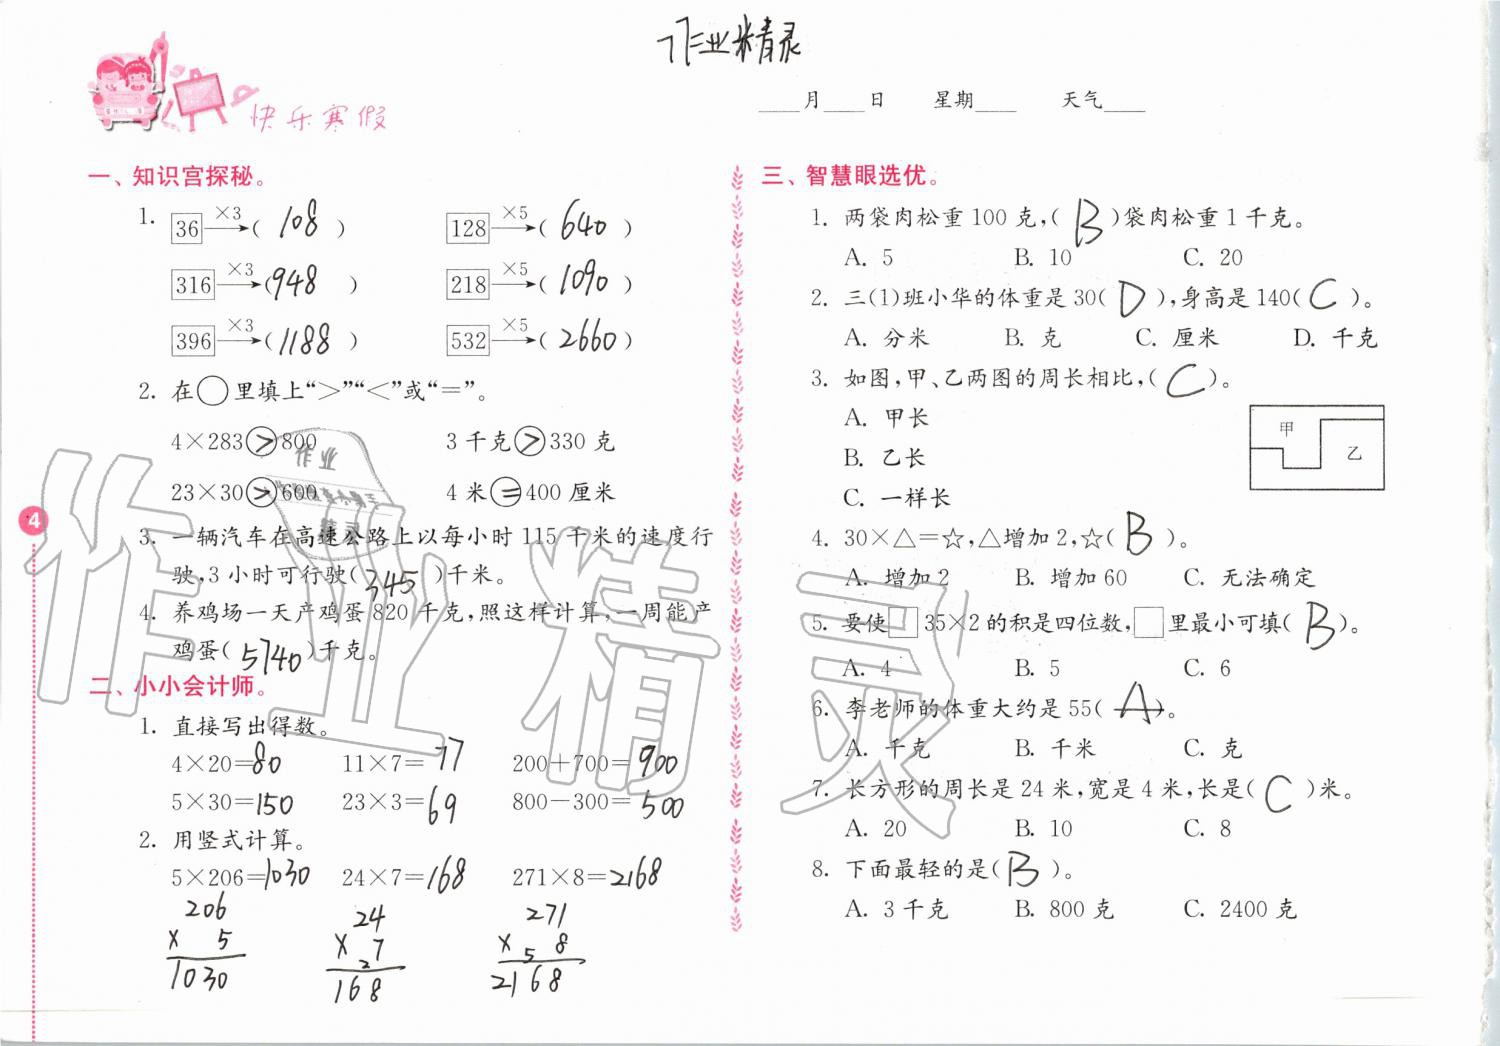 作业精灵
快乐寒假
____月____日 星期____ 天气____
一、知识宫探秘。
1. 36 ×3 → ( 108 ) 128 ×5 → ( 640 )
316 ×3 → ( 948 ) 218 ×5 → ( 1090 )
396 ×3 → ( 1188 ) 532 ×5 → ( 2660 )
2. 在○里填上“>”“<”或“=”。
4×283>800 3千克>330克
23×30>600 4米=400厘米
3. 一辆汽车在高速公路上以每小时115千米的速度行
驶,3小时可行驶( 345 )千米。
4. 养鸡场一天产鸡蛋820千克,照这样计算,一周能产
鸡蛋( 5740 )千克。
二、小小会计师。
1. 直接写出得数。
4×20=80 11×7=77 200+700=900
5×30=150 23×3=69 800-300=500
2. 用竖式计算。
5×206=1030 24×7=168 271×8=2168
206 24 271
× 5 × 2 7 × 5 8
1030 168 2168
4
三、智慧眼选优。
1. 两袋肉松重100克,( B )袋肉松重1千克。
A. 5 B. 10 C. 20
2. 三(1)班小华的体重是30( D ),身高是140( C )。
A. 分米 B. 克 C. 厘米 D. 千克
3. 如图,甲、乙两图的周长相比,( C )。
A. 甲长
B. 乙长
C. 一样长
甲
乙
4. 30×△=☆,△增加2,☆( B )。
A. 增加2 B. 增加60 C. 无法确定
5. 要使□35×2的积是四位数,□里最小可填( B )。
A. 4 B. 5 C. 6
6. 李老师的体重大约是55( A )。
A. 千克 B. 千米 C. 克
7. 长方形的周长是24米,宽是4米,长是( C )米。
A. 20 B. 10 C. 8
8. 下面最轻的是( B )。
A. 3千克 B. 800克 C. 2400克
作业精灵
作业
精灵